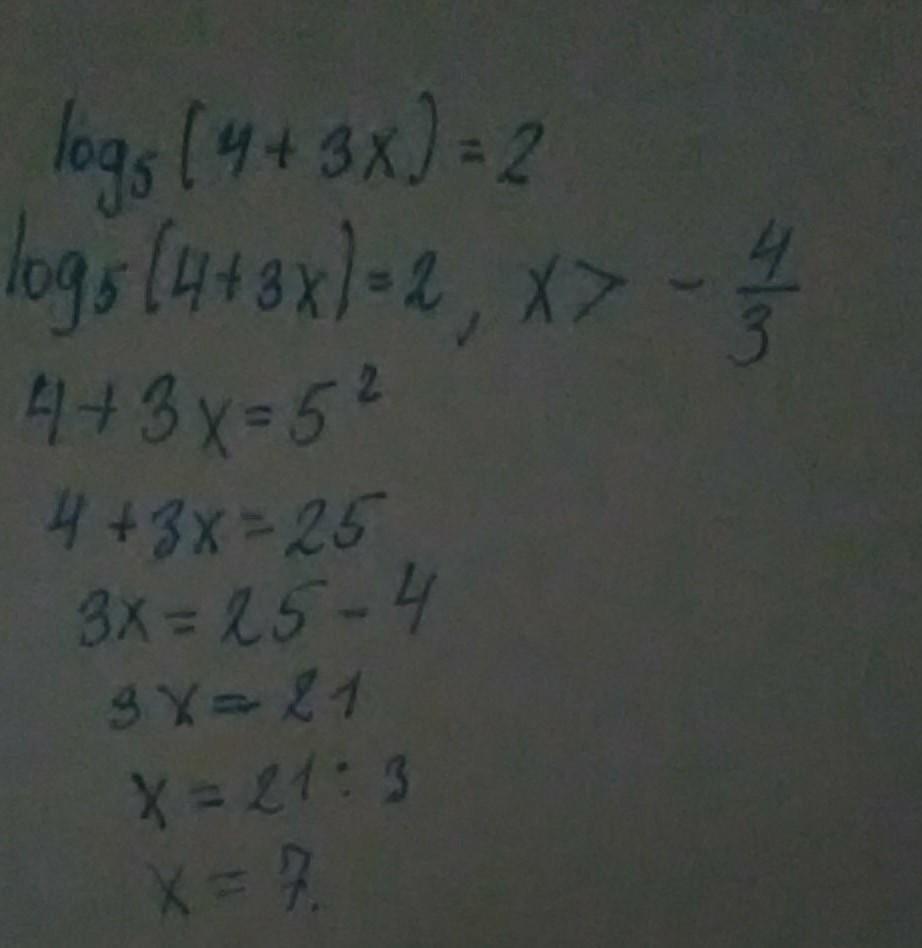 log₅(4+3x)=2
log₅(4+3x)=2, x> -4/3
4+3x=5²
4+3x=25
3x=25-4
3x=21
x=21:3
x=7.